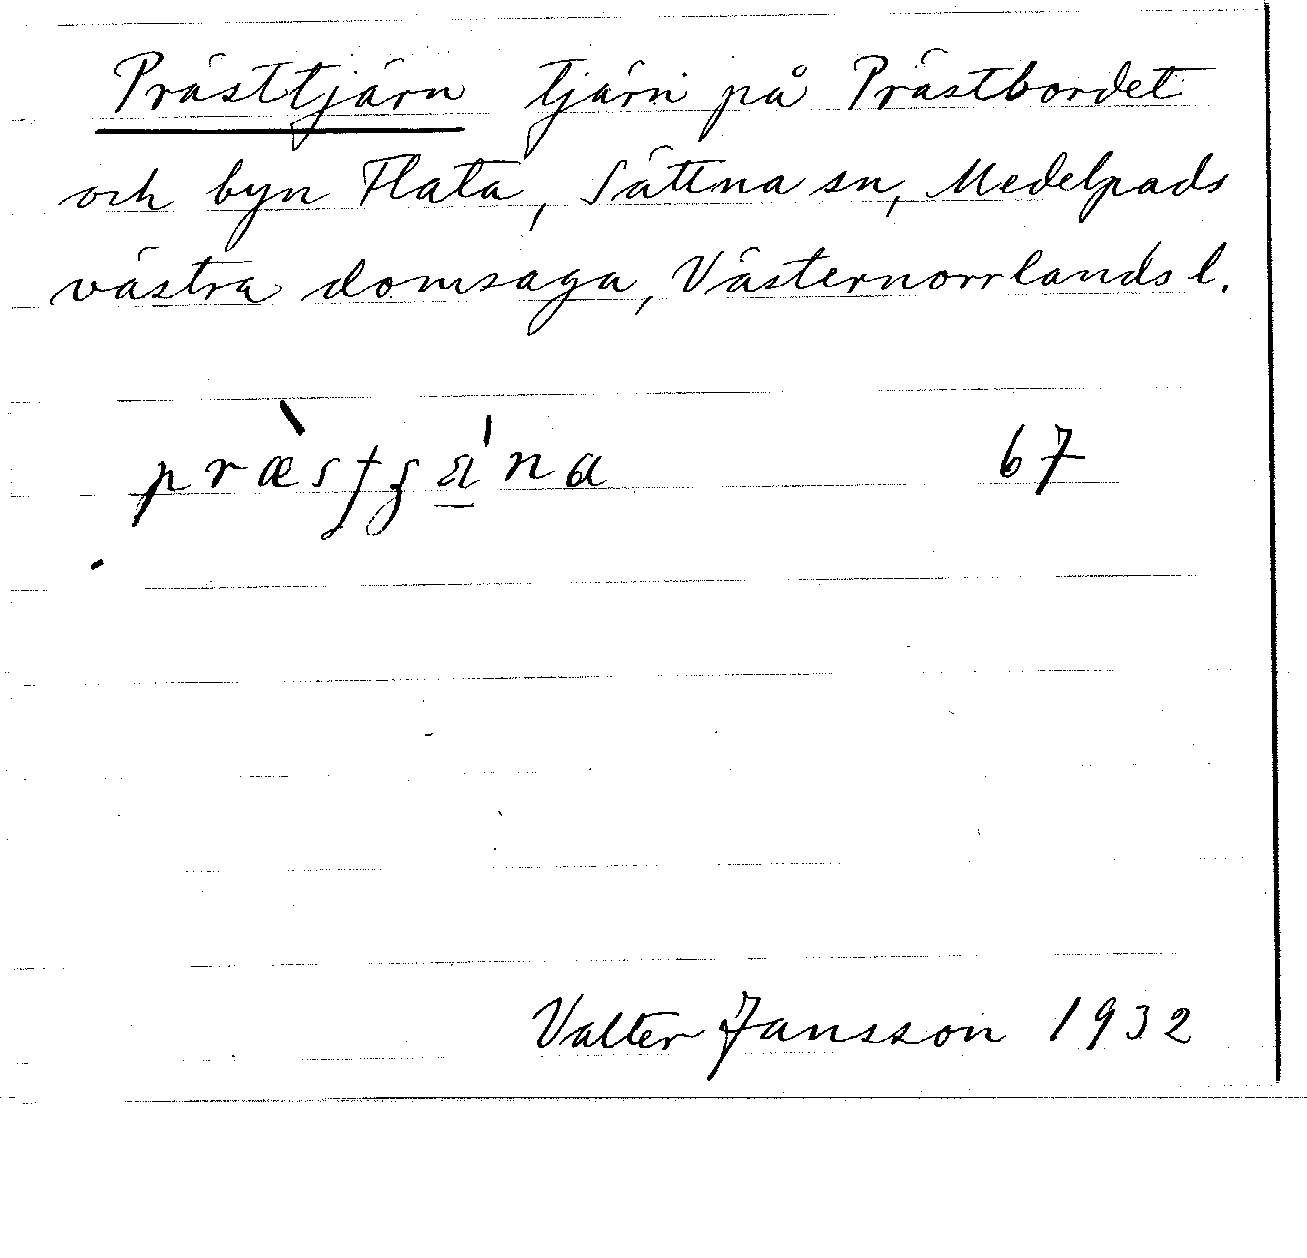 Prästtjärn tjärn på Prästbordet
och byn Flata, Sättna sn, Medelpads
västra domsaga, Västernorrlands l.
67
Valter Jansson 1932